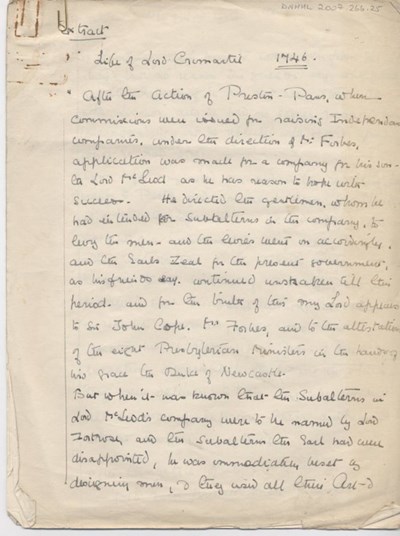 DNHHL 2007_266_25
Extract
" Life of Lord Cromartie 1746.
" After the Action of Preston-Pans, when
Commissions were issued for raising Independan
Companies, under the direction of Mr Forbes,
application was made for a company for his son-
the Lord McLeod as he has reason to hope with
Success - He directed the gentlemen, whom he
had intended for Subalterns in the company, to
levy the men - and the levies went on accordingly,
and the Earls Zeal for the present government,
as his friends say, continued unshaken till this
period. and for the truth of this my Lord appeals
to Sir John Cope. Mr Forbes, and to the attestation
of the eight Presbyterian Ministers in the hands of
his grace the Duke of Newcastle.
But when it was known that the Subalterns in
Lord McLeod's company were to be named by Lord
Fortrose, and the Subalterns the Earl had were
disappointed, he was immediately beset by
designing men, & they used all their Art - &